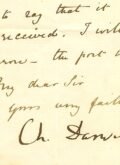 to say that it
received. I will
row — the post is
My dear Sir
Yours very faith
Ch. Darwin